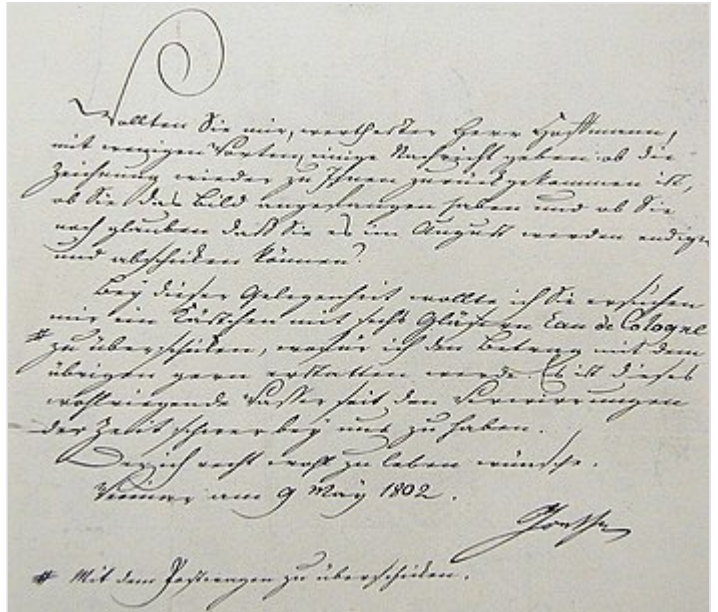 Wollten Sie mir, werthester Herr Hoffmann,
mit wenigen Worten, einige Nachricht geben ob die
Zeichnung wieder zu Ihnen zurückgekommen ist,
ob Sie das Bild angefangen haben und ob Sie
noch glauben daß Sie es im August werden endigen
und abschicken können?
Bey dieser Gelegenheit wollte ich Sie ersuchen
mir ein Kästchen mit sechs Gläsern Eau de Cologne
# zu überschicken, wofür ich den Betrag mit dem
übrigen gern erstatten werde. Es ist dieses
wohlriechende Wasser seit den Verwirrungen
der Zeit, schwer bey uns zu haben.
Der ich recht wohl zu leben wünsche.
Weimar am 9 May 1802.
Goethe
# Mit dem Postwagen zu überschicken.